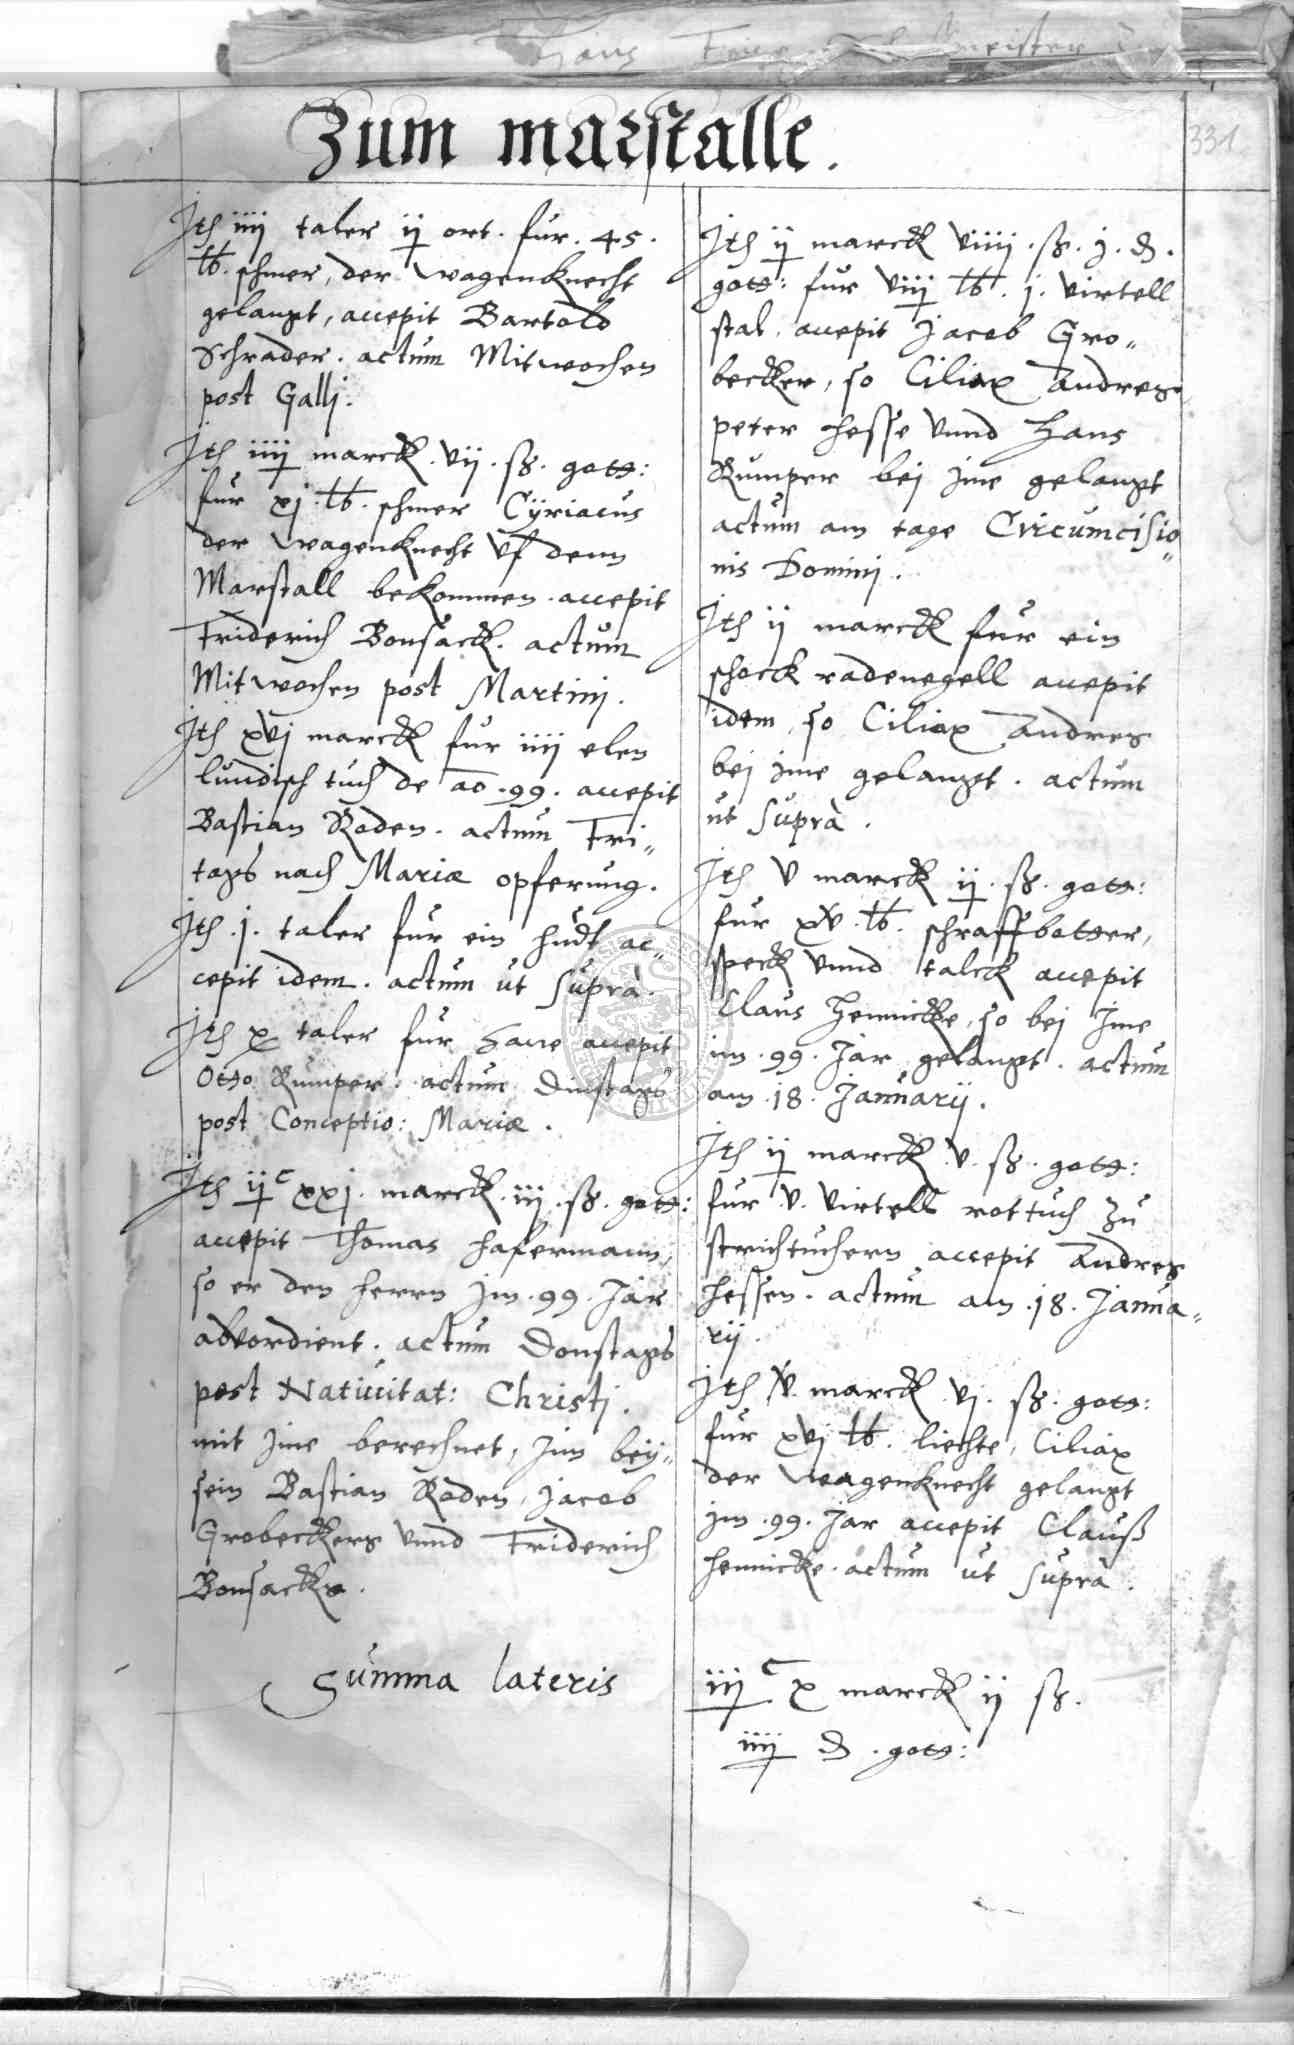 331
Zum marstalle.
Jth iiij taler ij ort. fur. 45.
℔. schmer, der wagenknecht
gelangt, accepit Bartold
Schrader. actum Mitwochen
post Galli.
Jth iiij marck. vij. ß. gott:
fur xj. ℔. schmer Cÿriacus
der wagenknecht vf denn
Marstall bekommen. accepit
Friderich Bonsack. actum
Mitwochen post Martinj.
Jth xvj marck fur iiij elen
lundisch tuch de ao. 99. accepit
Bastian Roden. actum Fri„
tags nach Mariæ opferung.
Jth. j. taler fur ein hudt ac„
cepit idem. actum ut suprà.
Jth x taler fur accepit
Otto Rumper. actum Dinstags
post Conceptio: Mariæ.
Jth ijᶜ xxj. marck. iij. ß. gott:
accepit Thomas Hafermann,
so er den herrn jm. 99. Jar
abvordient. actum Donstags
post Natiuitat: Christj.
mit jme berechnet, jim beÿ„
sein Bastian Roden, Jacob
Grobeckers vnnd Friderich
Bonsacks.
Jth ij marck viiij. ß. j. ₰.
gott: fur viij ℔. j. virtell
stal. accepit Jacob Gro„
becker, so Ciliax Andres
peter Hesse vnnd Hans
Rumper bej jme gelangt
actum am tage Circumcisio„
nis Dominj.
Jth ij marck fur ein
schock radenegell accepit
idem, so Ciliax Andres
bej jme gelangt. actum
ut suprà.
Jth v marck ij. ß. gott:
fur xv. ℔. schraffbotter,
speck vnnd talck accepit
Claus Hennicke, so bej Jme
im. 99. Jar gelangt. actum
am. 18. Januarij.
Jth ij marck. v. ß. gott:
fur. v. virtell rottuch zu
strichtuchern accepit Andres
Hessen. actum am. 18. Janua„
rij.
Jth v. marck vj. ß. gott:
fur xvj ℔. liechte, Ciliax
der wagenknecht gelangt
jm. 99. Jar accepit Clauß
Hennicke. actum ut suprà.
Summa lateris
iijᶜ x marck ij ß.
iiij ₰. gott: